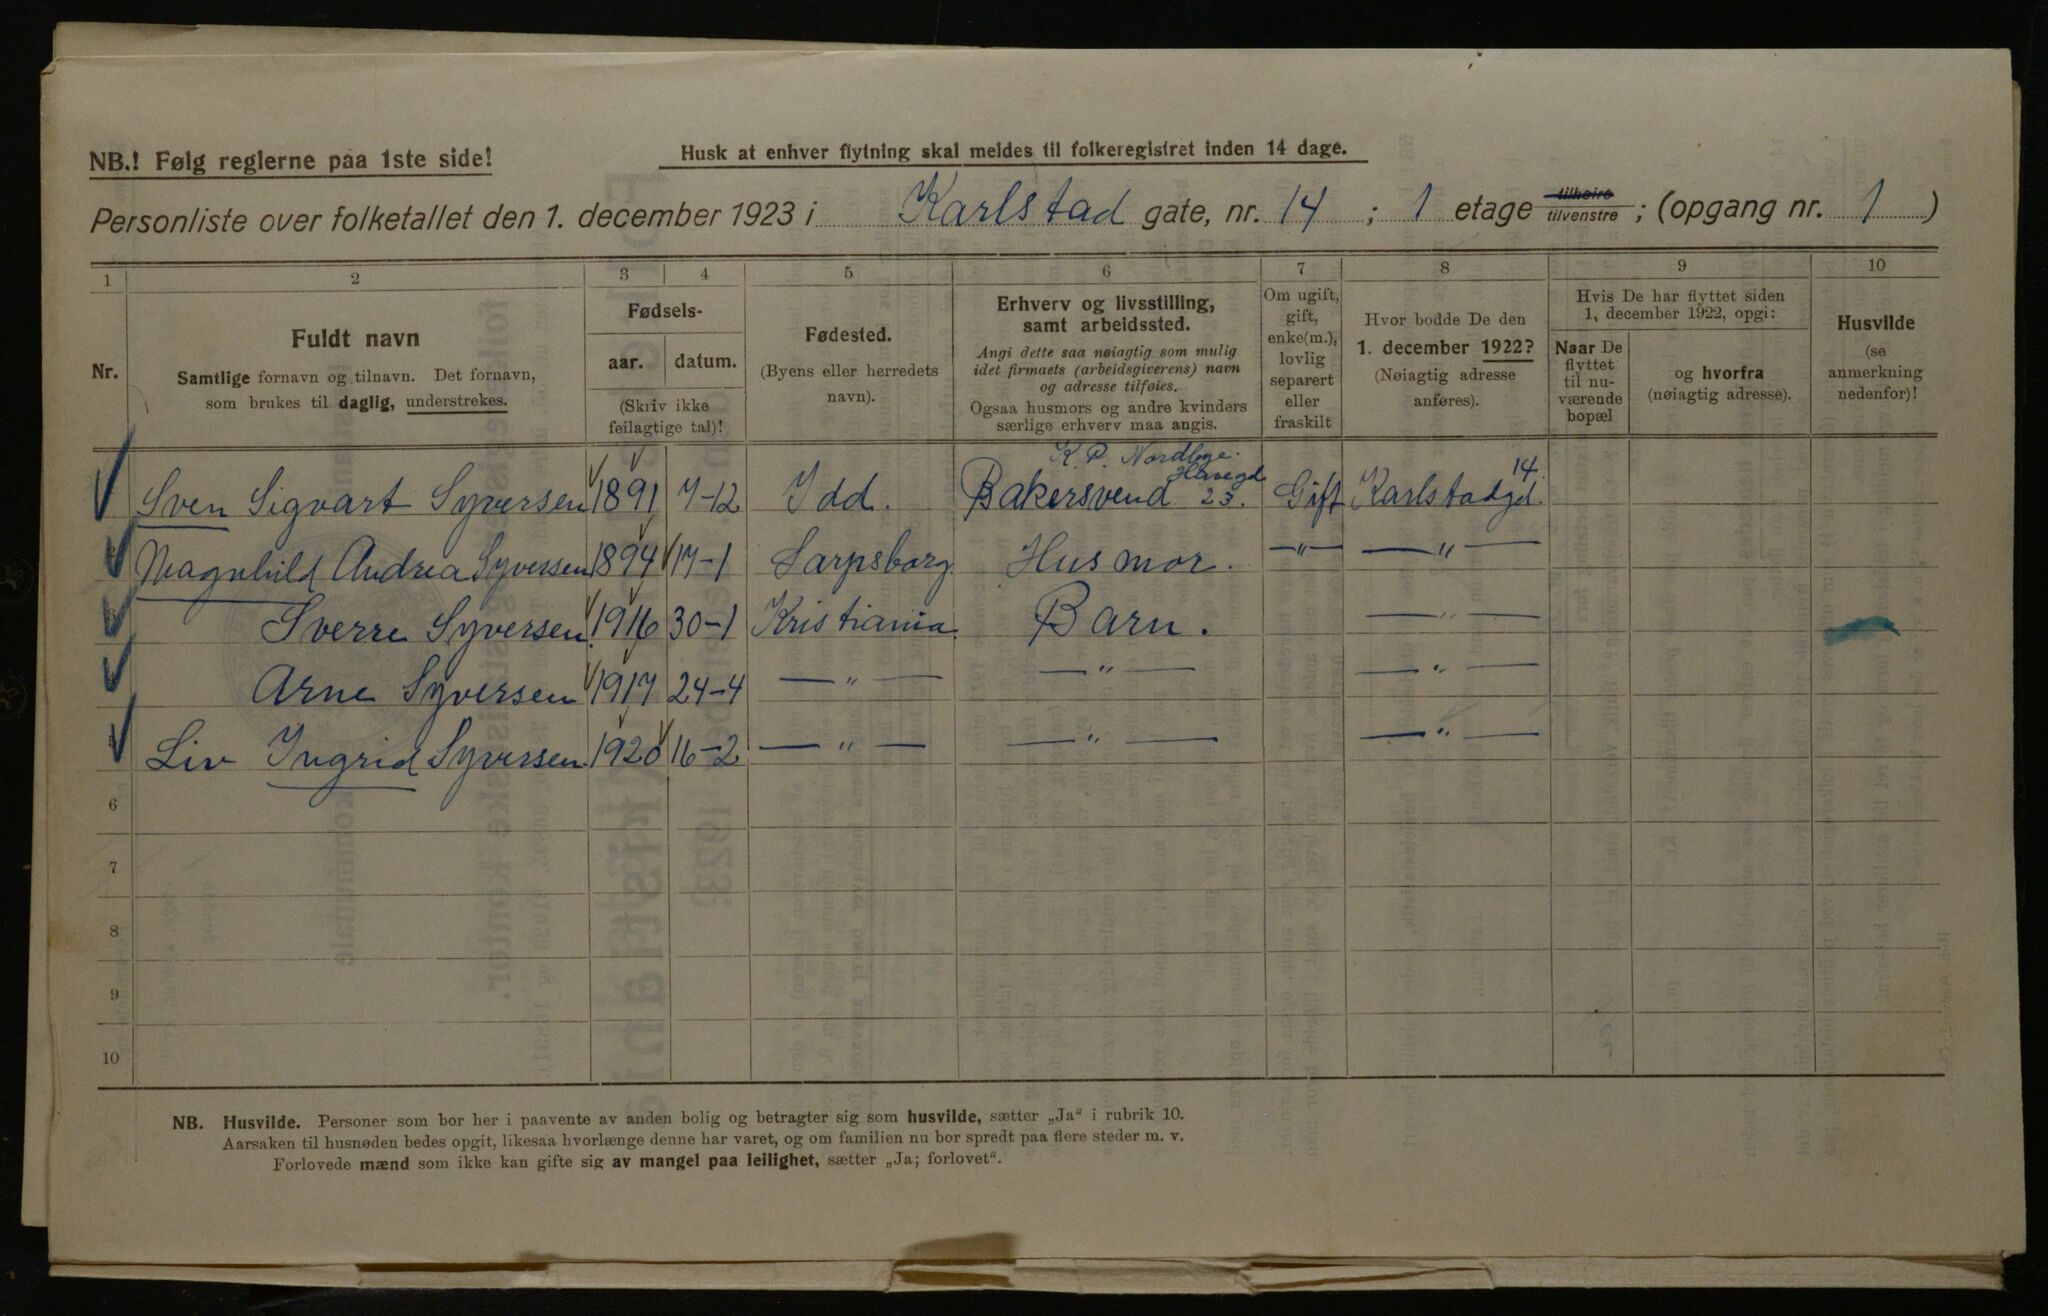 NB.! Følg reglerne paa 1ste side!
Husk at enhver flytning skal meldes til folkeregistret inden 14 dage.
Personliste over folketallet den 1. december 1923 i Karlstad gate, nr. 14 ; 1 etage tilhøire/tilvenstre ; (opgang nr. 1 )
1 2 3 4 5 6 7 8 9 10
Nr.
Fuldt navn
Samtlige fornavn og tilnavn. Det fornavn,
som brukes til daglig, understrekes.
Fødsels-
aar. datum.
(Skriv ikke
feilagtige tal)!
Fødested.
(Byens eller herredets
navn).
Erhverv og livsstilling,
samt arbeidssted.
Angi dette saa nøiagtig som mulig
idet firmaets (arbeidsgiverens) navn
og adresse tilføies.
Ogsaa husmors og andre kvinders
særlige erhverv maa angis.
Om ugift,
gift,
enke(m.),
lovlig
separert
eller
fraskilt
Hvor bodde De den
1. december 1922?
(Nøiagtig adresse
anføres).
Hvis De har flyttet siden
1, december 1922, opgi:
Naar De
flyttet
til nu-
værende
bopæl
og hvorfra
(nøiagtig adresse).
Husvilde
(se
anmerkning
nedenfor)!
K. P. Nordbye.
Sven Sigvart Syversen 1891 7-12 Idd. Bakersvend 23. Gift Karlstadgd. 14.
Magnhild Andrea Syversen 1894 17-1 Sarpsborg. Husmor. — " — — " —
Sverre Syversen 1916 30-1 Kristiania. Barn. — " —
Arne Syversen 1917 24-4 — " — — " — — " —
Liv Ingrid Syversen 1920 16-2 — " — — " — — " —
6
7
8
9
10
NB. Husvilde. Personer som bor her i paavente av anden bolig og betragter sig som husvilde, sætter „Ja“ i rubrik 10.
Aarsaken til husnøden bedes opgit, likesaa hvorlænge denne har varet, og om familien nu bor spredt paa flere steder m. v.
Forlovede mænd som ikke kan gifte sig av mangel paa leilighet, sætter „Ja; forlovet“.